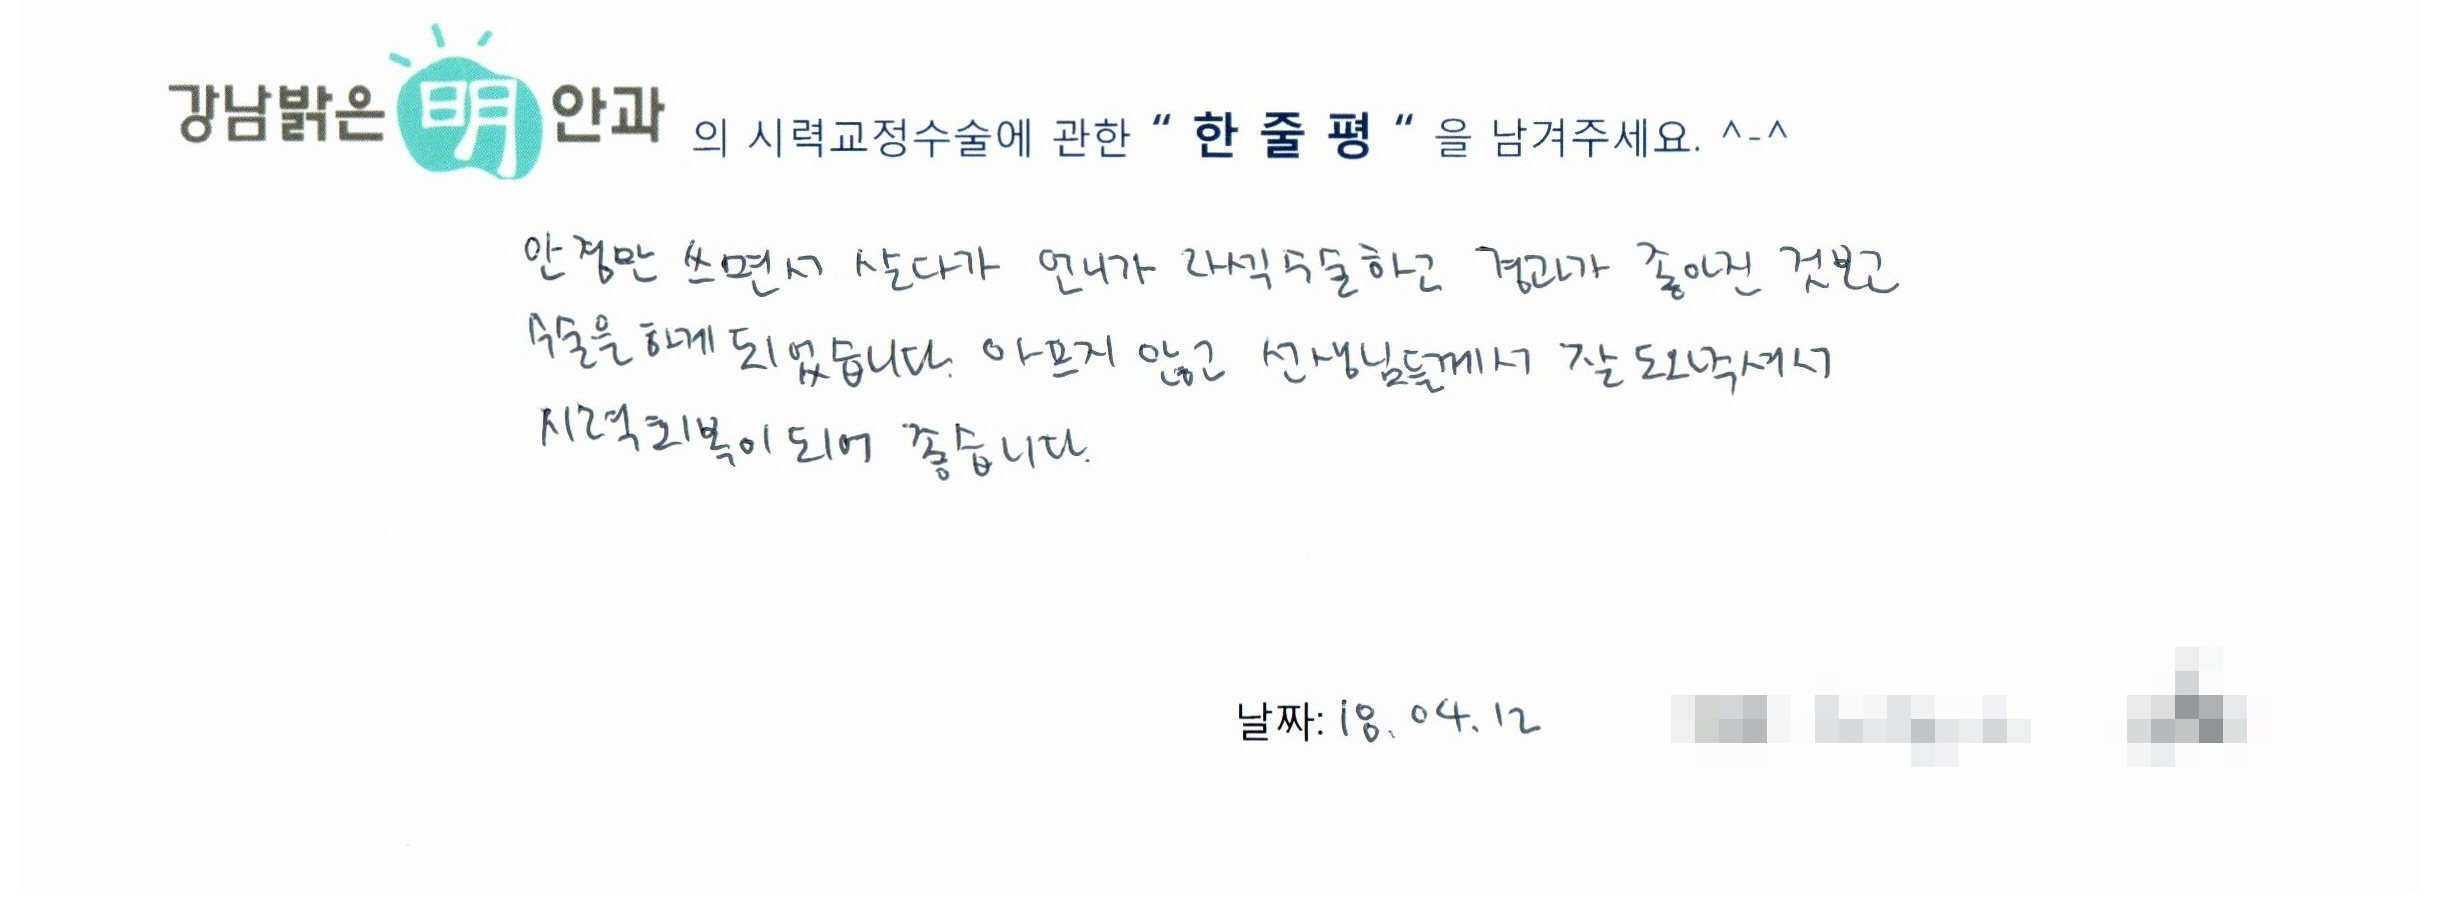 강남밝은 明 안과 의 시력교정수술에 관한 “ 한 줄 평 “ 을 남겨주세요. ^-^
안경만 쓰면서 살다가 언니가 라식수술하고 경과가 좋아진 것보고
수술을 하게 되었습니다. 아프지 않고 선생님들께서 잘 도와주셔서
시력회복이 되어 좋습니다.
날짜: 18. 04. 12